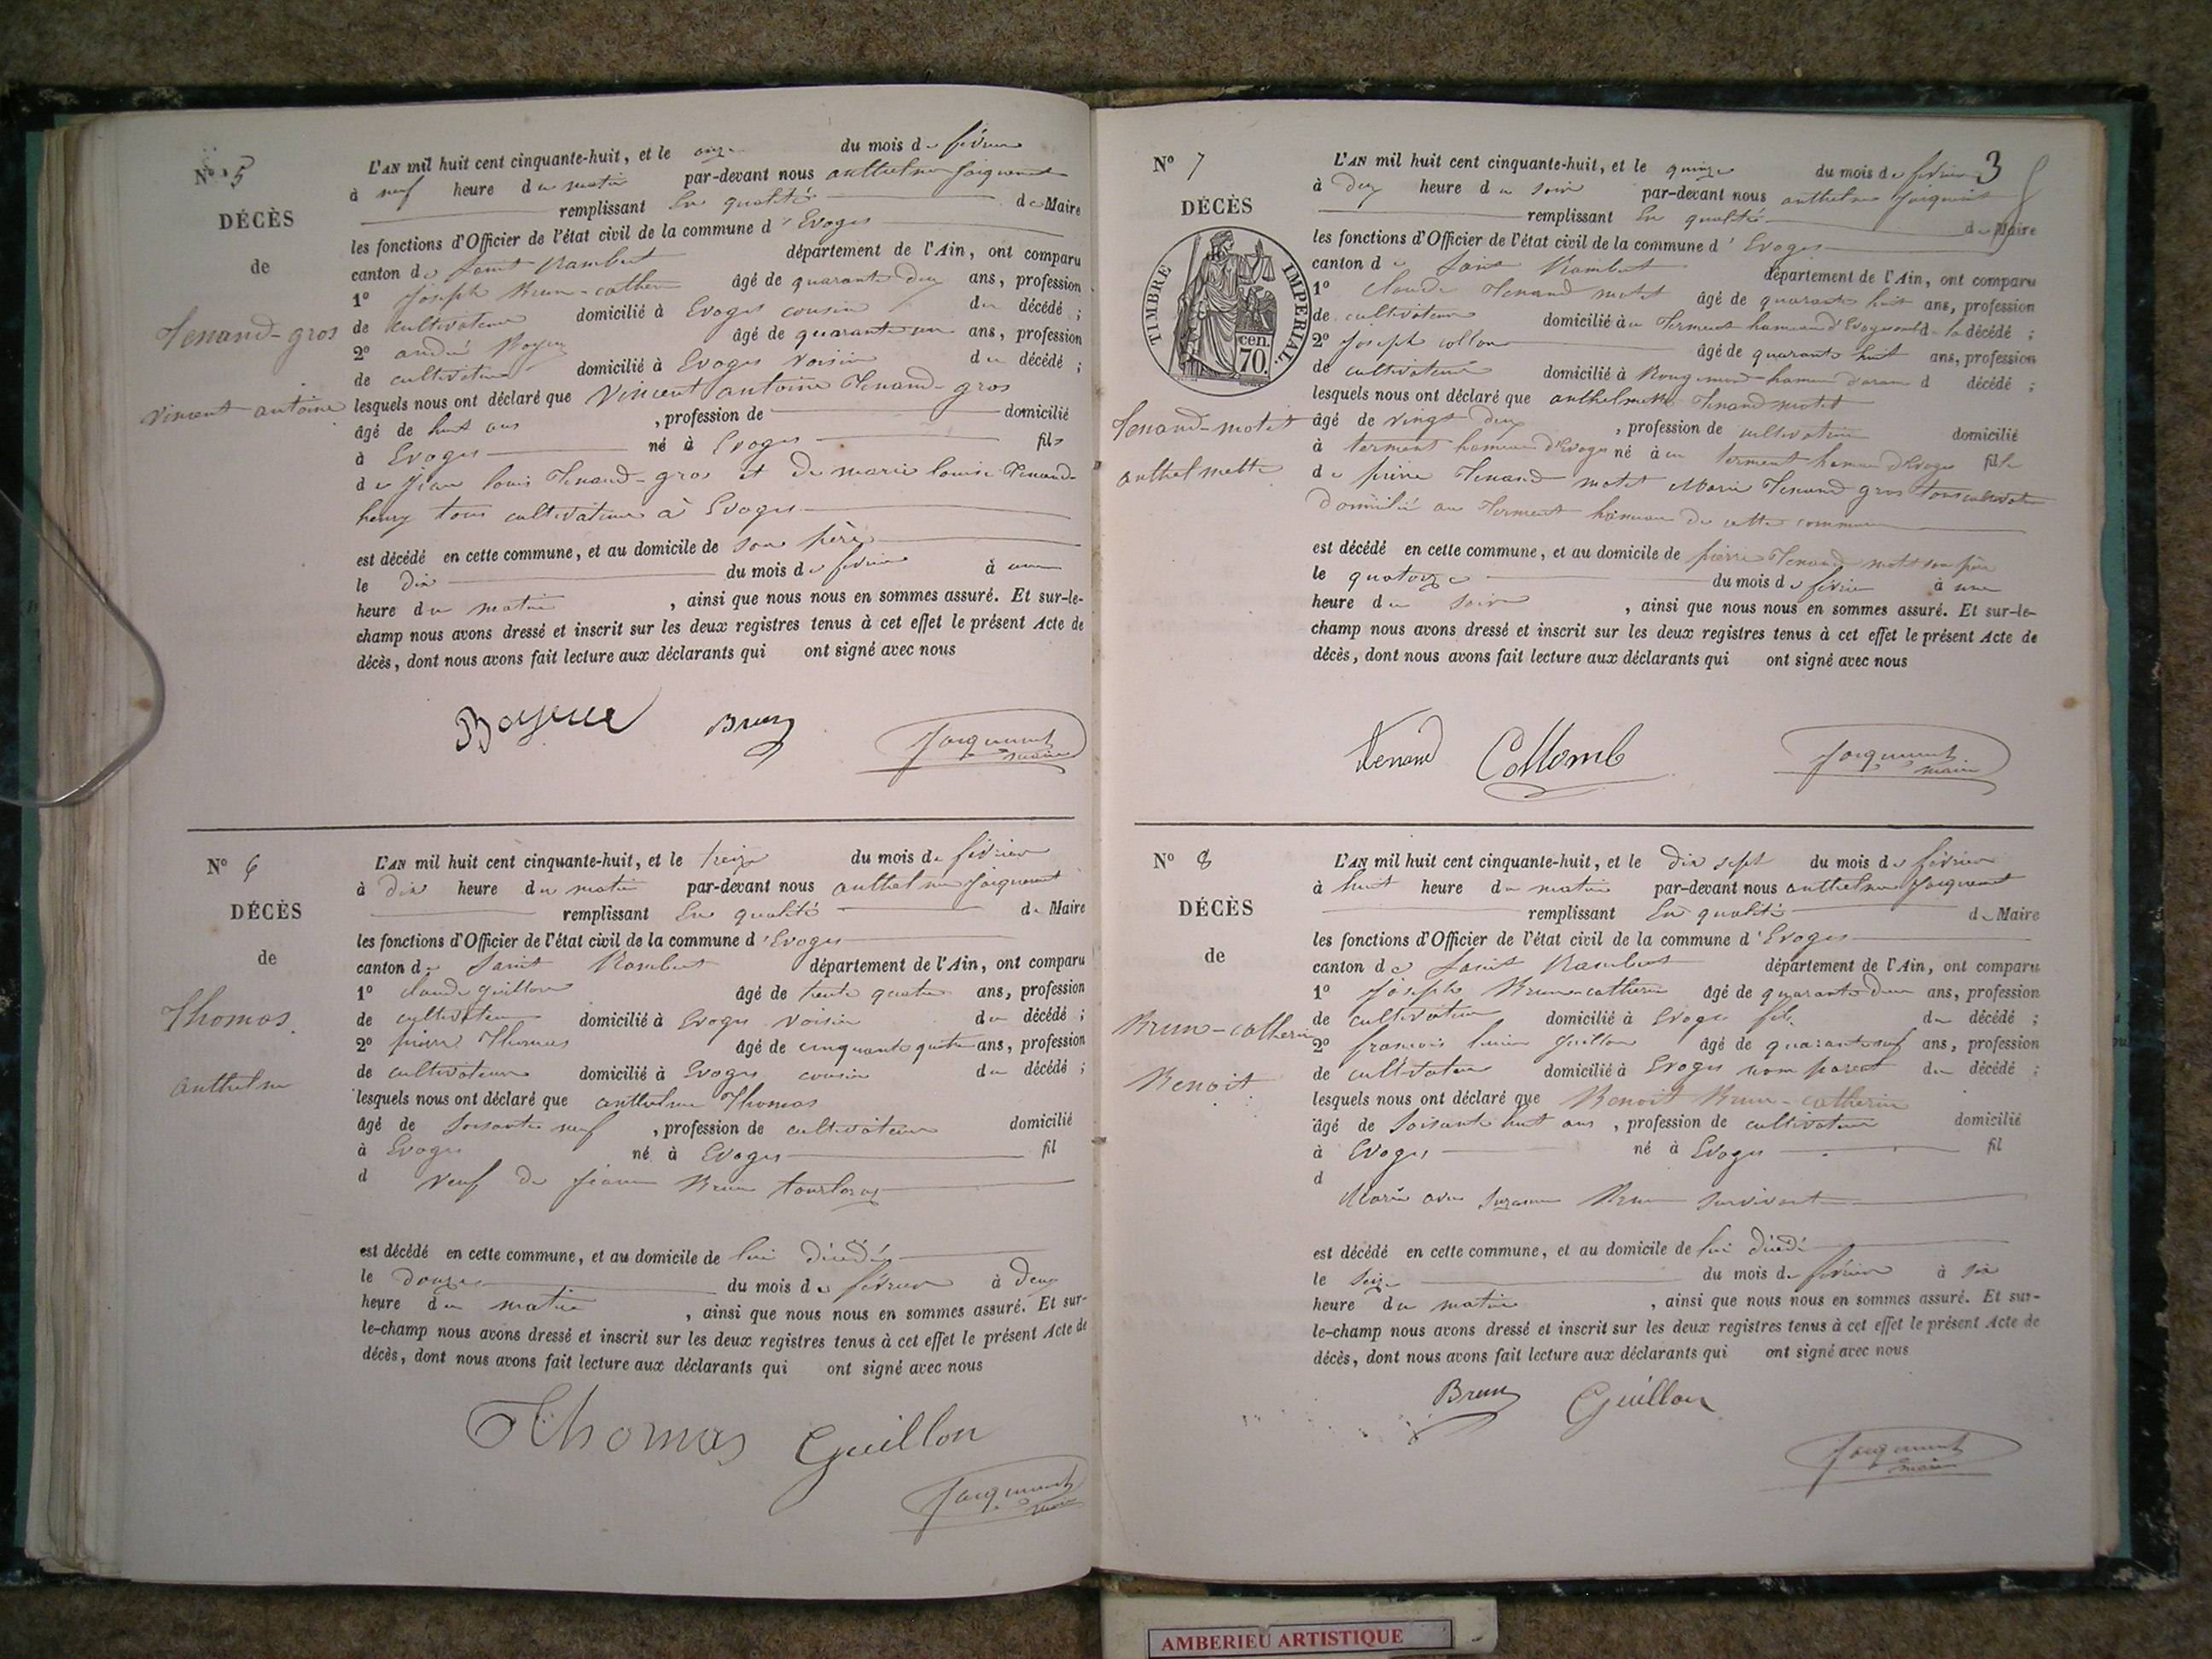 N° 5
DÉCÈS
de
Tenand-gros
vincent antoine
L'AN mil huit cent cinquante-huit, et le onze du mois de février
à neuf heure du matin par-devant nous anthelme Jacquemet
remplissant En qualité de Maire
les fonctions d'Officier de l'état civil de la commune d'Evoges
canton de Saint Rambert département de l'Ain, ont comparu
1° Joseph Brun-catherin âgé de quarante deux ans, profession
de cultivateur domicilié à Evoges cousin du décédé ;
2° andré Boyeux âgé de quarante un ans, profession
de cultivateur domicilié à Evoges voisin du décédé ;
lesquels nous ont déclaré que Vincent antoine Tenand-gros
âgé de huit ans , profession de domicilié
à Evoges né à Evoges fils
de jean louis Tenand-gros et de marie louise Tenand-
henry tous cultivateurs à Evoges
est décédé en cette commune, et au domicile de son père
le dix du mois de février à une
heure du matin , ainsi que nous nous en sommes assuré. Et sur-le-
champ nous avons dressé et inscrit sur les deux registres tenus à cet effet le présent Acte de
décès, dont nous avons fait lecture aux déclarants qui ont signé avec nous
Brun Jacquemet
maire
N° 6
DÉCÈS
de
Thomas
anthelme
L'AN mil huit cent cinquante-huit, et le treize du mois de février
à dix heure du matin par-devant nous anthelme Jacquemet
remplissant En qualité de Maire
les fonctions d'Officier de l'état civil de la commune d'Evoges
canton de Saint Rambert département de l'Ain, ont comparu
1° claude guillon âgé de trente quatre ans, profession
de cultivateur domicilié à Evoges voisin du décédé ;
2° pierre Thomas âgé de cinquante quatre ans, profession
de cultivateur domicilié à Evoges cousin du décédé ;
lesquels nous ont déclaré que anthelme Thomas
âgé de soisante neuf , profession de cultivateur domicilié
à Evoges né à Evoges fil
d veuf de jeanne Brun
est décédé en cette commune, et au domicile de lui décédé
le douze du mois de février à deux
heure du matin , ainsi que nous nous en sommes assuré. Et sur-
le-champ nous avons dressé et inscrit sur les deux registres tenus à cet effet le présent Acte de
décès, dont nous avons fait lecture aux déclarants qui ont signé avec nous
Thomas Guillon
Jacquemet
maire
3
N° 7
DÉCÈS
TIMBRE IMPÉRIAL
70. cen.
Tenand-motet
anthelmette
L'AN mil huit cent cinquante-huit, et le quinze du mois de février
à deux heure du soir par-devant nous anthelme Jacquemet
remplissant En qualité de Maire
les fonctions d'Officier de l'état civil de la commune d'Evoges
canton de Saint Rambert département de l'Ain, ont comparu
1° claude Tenand motet âgé de quarante huit ans, profession
de cultivateur domicilié à Terment hameau d'Evoges la décédé ;
2° joseph âgé de quarante huit ans, profession
de cultivateur domicilié à hameau d'aran d décédé ;
lesquels nous ont déclaré que anthelmette Tenand motet
âgé de vingt deux , profession de cultivatrice domicilié
à terment hameau d'Evoges né à terment hameau d'Evoges fille
de pierre Tenand motet Marie Tenand gros tous cultivateurs
domicilié au Terment hameau de cette commune
est décédé en cette commune, et au domicile de pierre Tenand motet son père
le quatorze du mois de février à une
heure du soir , ainsi que nous nous en sommes assuré. Et sur-le-
champ nous avons dressé et inscrit sur les deux registres tenus à cet effet le présent Acte de
décès, dont nous avons fait lecture aux déclarants qui ont signé avec nous
Tenand Collomb Jacquemet
maire
N° 8
DÉCÈS
de
Brun-catherin
Benoit
L'AN mil huit cent cinquante-huit, et le dix sept du mois de février
à huit heure du matin par-devant nous anthelme Jacquemet
remplissant En qualité de Maire
les fonctions d'Officier de l'état civil de la commune d'Evoges
canton de Saint Rambert département de l'Ain, ont comparu
1° Joseph Brun-catherin âgé de quarante deux ans, profession
de cultivateur domicilié à Evoges fils du décédé ;
2° françois lucien guillon âgé de quarante neuf ans, profession
de cultivateur domicilié à Evoges non parent du décédé ;
lesquels nous ont déclaré que Benoit Brun-catherin
âgé de soisante huit ans , profession de cultivateur domicilié
à Evoges né à Evoges fil
d
Marié avec Suzanne Brun survivante
est décédé en cette commune, et au domicile de lui décédé
le seize du mois de février à six
heure du matin , ainsi que nous nous en sommes assuré. Et sur-
le-champ nous avons dressé et inscrit sur les deux registres tenus à cet effet le présent Acte de
décès, dont nous avons fait lecture aux déclarants qui ont signé avec nous
Brun Guillon
Jacquemet
maire
AMBERIEU ARTISTIQUE